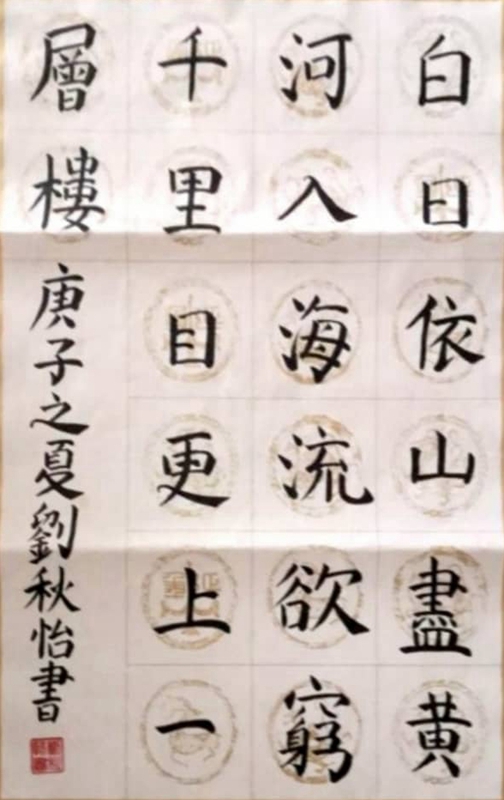 白日依山盡黄
河入海流欲窮
千里目更上一
層樓庚子之夏劉秋怡書